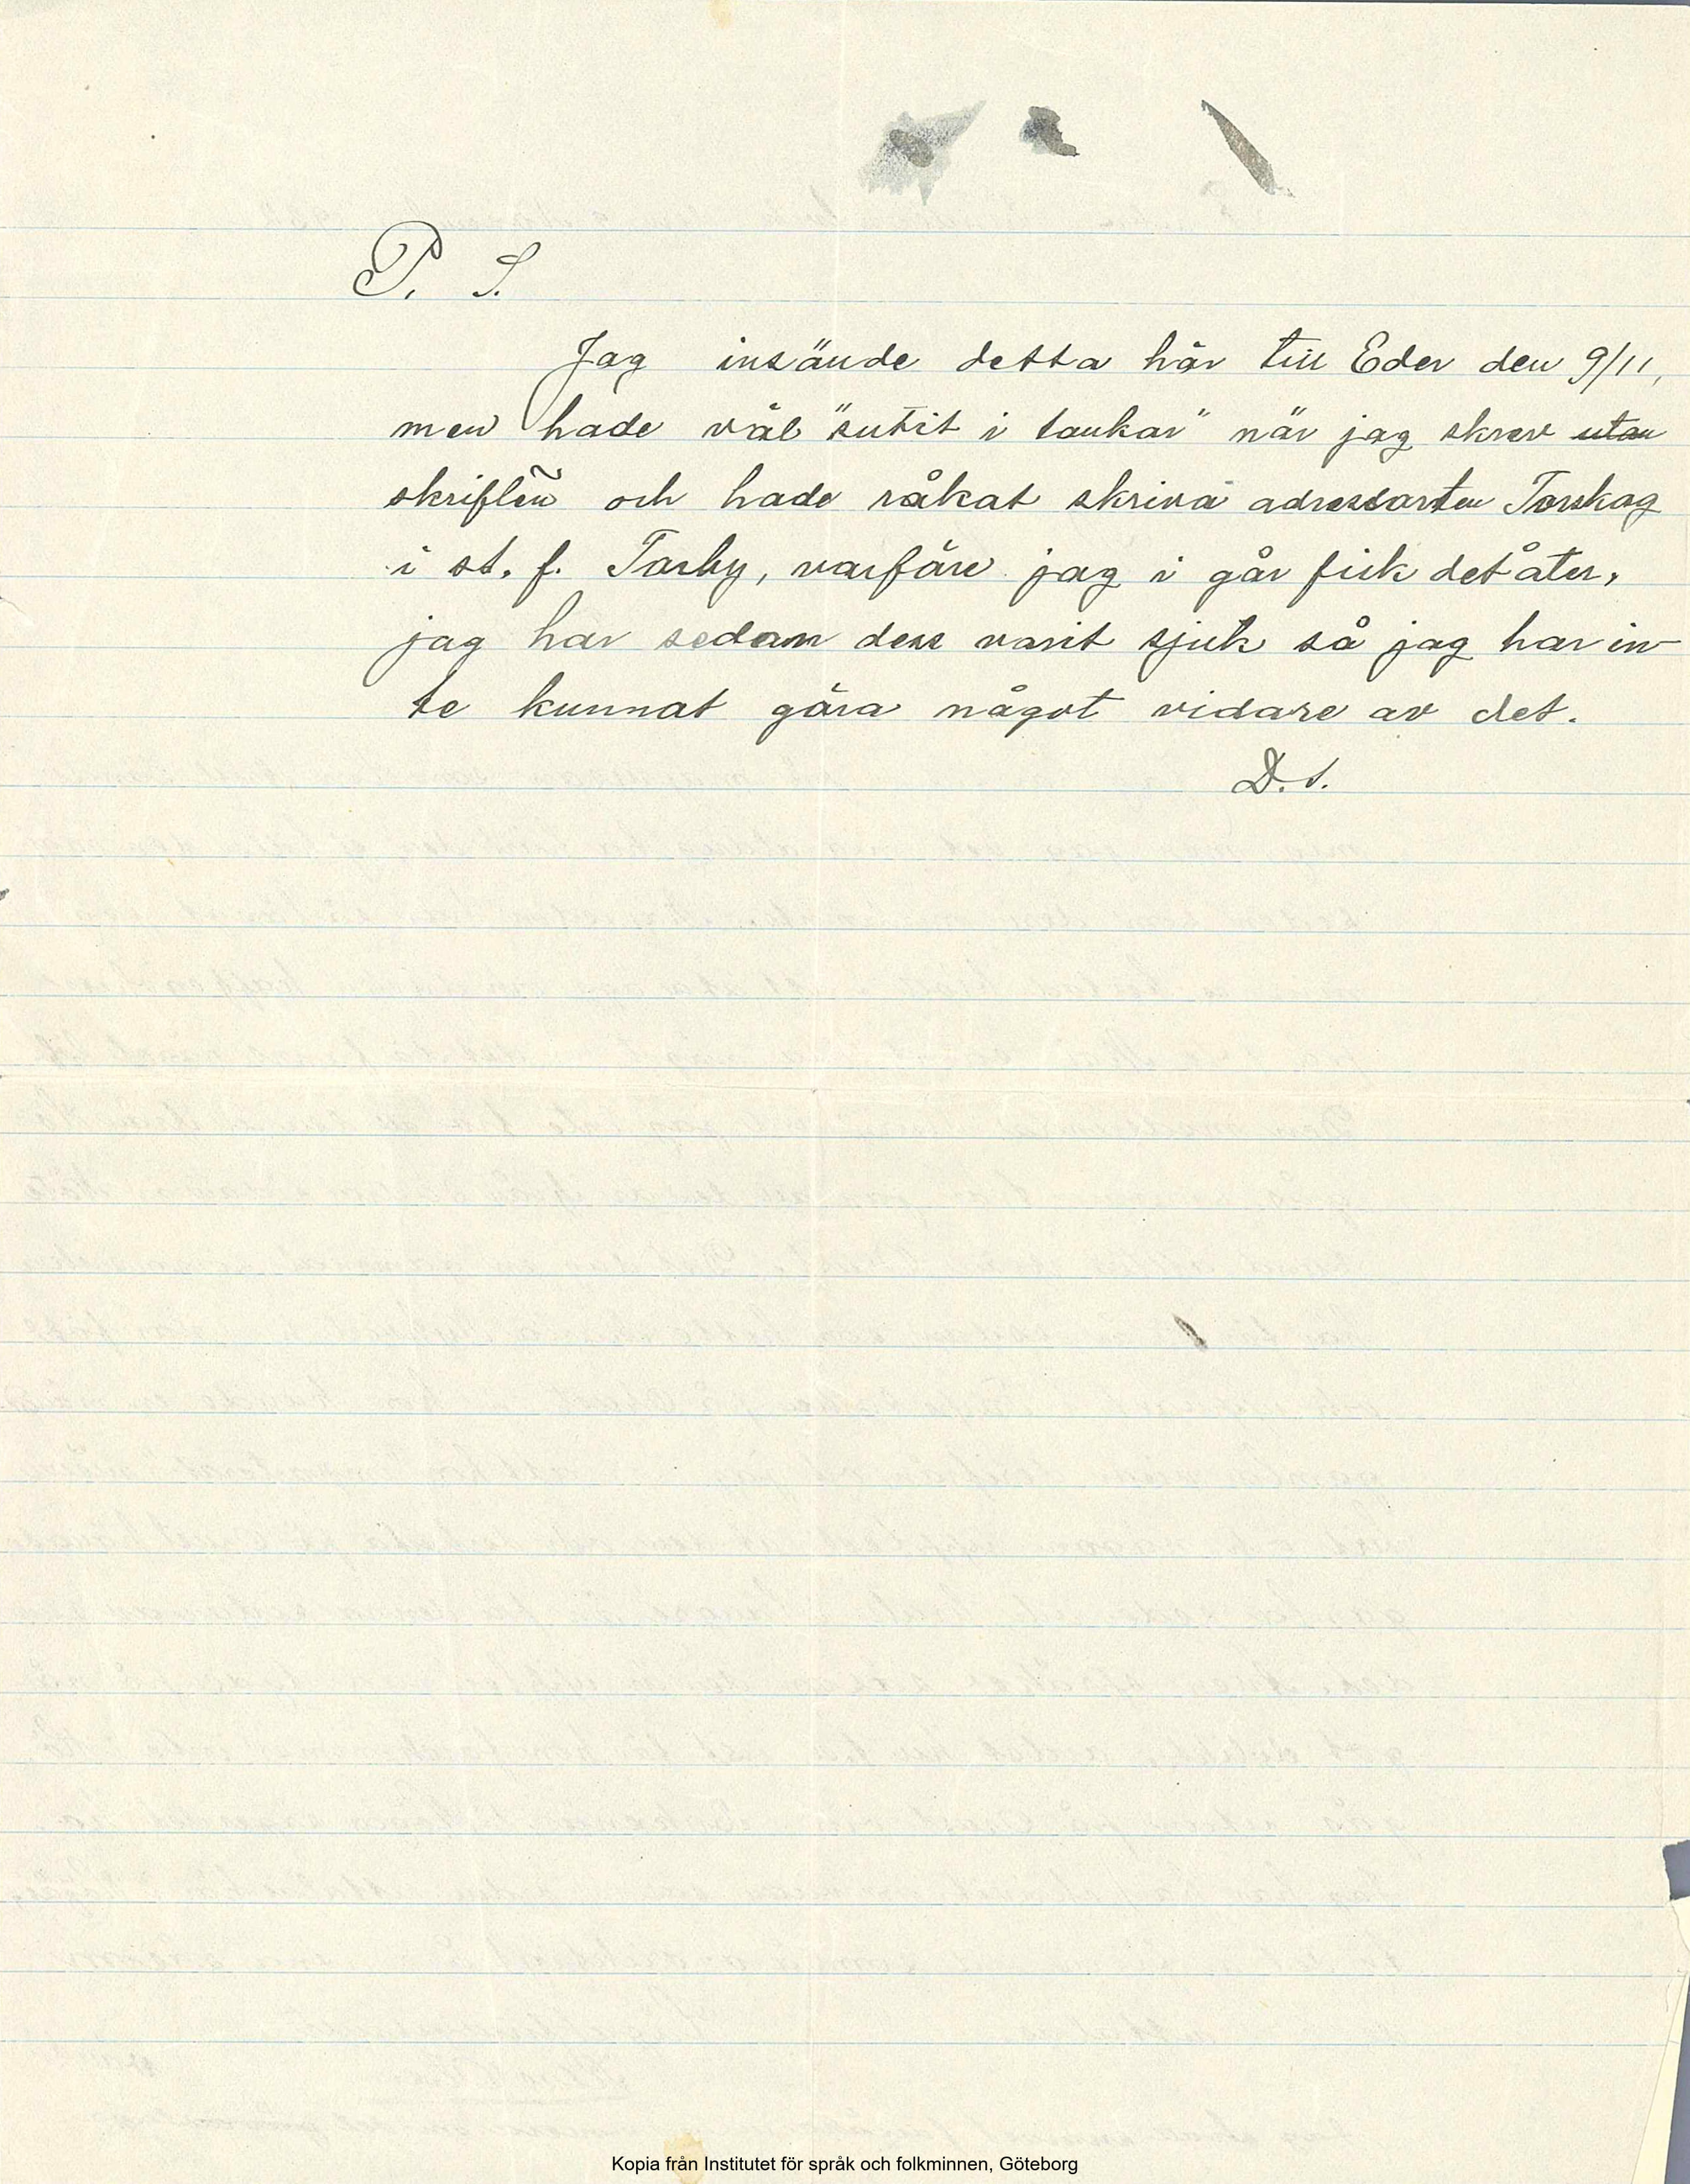 P. S.
Jag insände detta här till Eder den 9/11,
men hade väl "sutit i tankar" när jag skrev utan
skriften och hade råkat skriva adressorten Torskog
i st. f. Torby, varföre jag i går fick det åter,
jag har sedan dess varit sjuk så jag har in-
te kunnat göra något vidare av det.
D. S.
Kopia från Institutet för språk och folkminnen, Göteborg